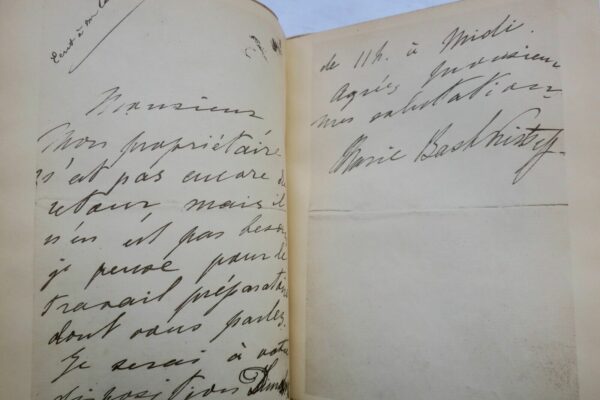 Ecrit à
Monsieur
Mon propriétaire
n'est pas encore de
retour mais il
n'en est pas besoin
je pense pour le
travail préparatoire
dont vous parlez.
Je serai à votre
disposition Dimanche
de 11h. à Midi.
Agréez monsieur
mes salutations
Marie Bashkirtseff